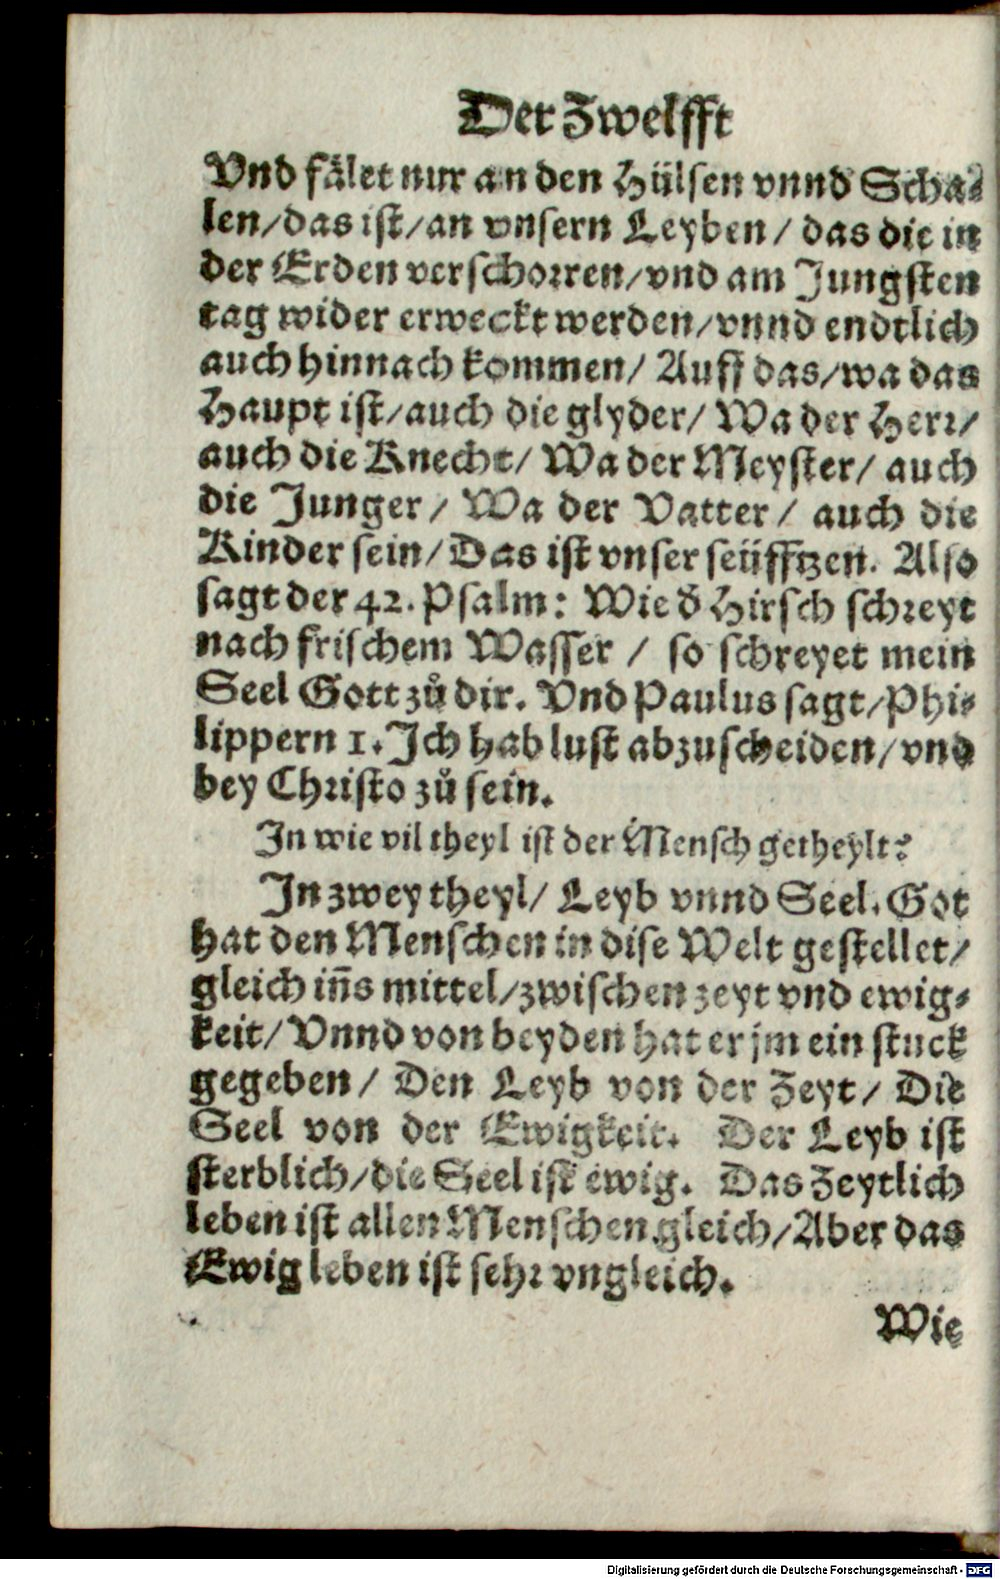 Der Zwelfft
Vnd fälet nur an den Hülsen vnnd Scha-
len/das ist/an vnsern Leyben/ das die in
der Erden verschorren/vnd am Jungsten
tag wider erweckt werden/vnnd endtlich
auch hinnach kommen/ Auff das/wa das
Haupt ist/auch die glyder/ Wa der Herr/
auch die Knecht/ Wa der Meyster/ auch
die Junger/ Wa der Vatter/ auch die
Kinder sein/ Das ist vnser seüfftzen. Also
sagt der 42. Psalm: Wie d̕ Hirsch schreyt
nach frischem Wasser / so schreyet mein
Seel Gott zů dir. Vnd Paulus sagt/Phi-
lippern 1. Jch hab lust abzuscheiden/vnd
bey Christo zů sein.
Jn wie vil theyl ist der Mensch getheylt?
Jn zwey theyl/ Leyb vnnd Seel. Got
hat den Menschen in dise Welt gestellet/
gleich iñs mittel/zwischen zeyt vnd ewig-
keit/ Vnnd von beyden hat er jm ein stuck
gegeben/ Den Leyb von der Zeyt/ Die
Seel von der Ewigkeit. Der Leyb ist
sterblich/die Seel ist ewig. Das Zeytlich
leben ist allen Menschen gleich/Aber das
Ewig leben ist sehr vngleich.
Wie
Digitalisierung gefördert durch die Deutsche Forschungsgemeinschaft - DFG